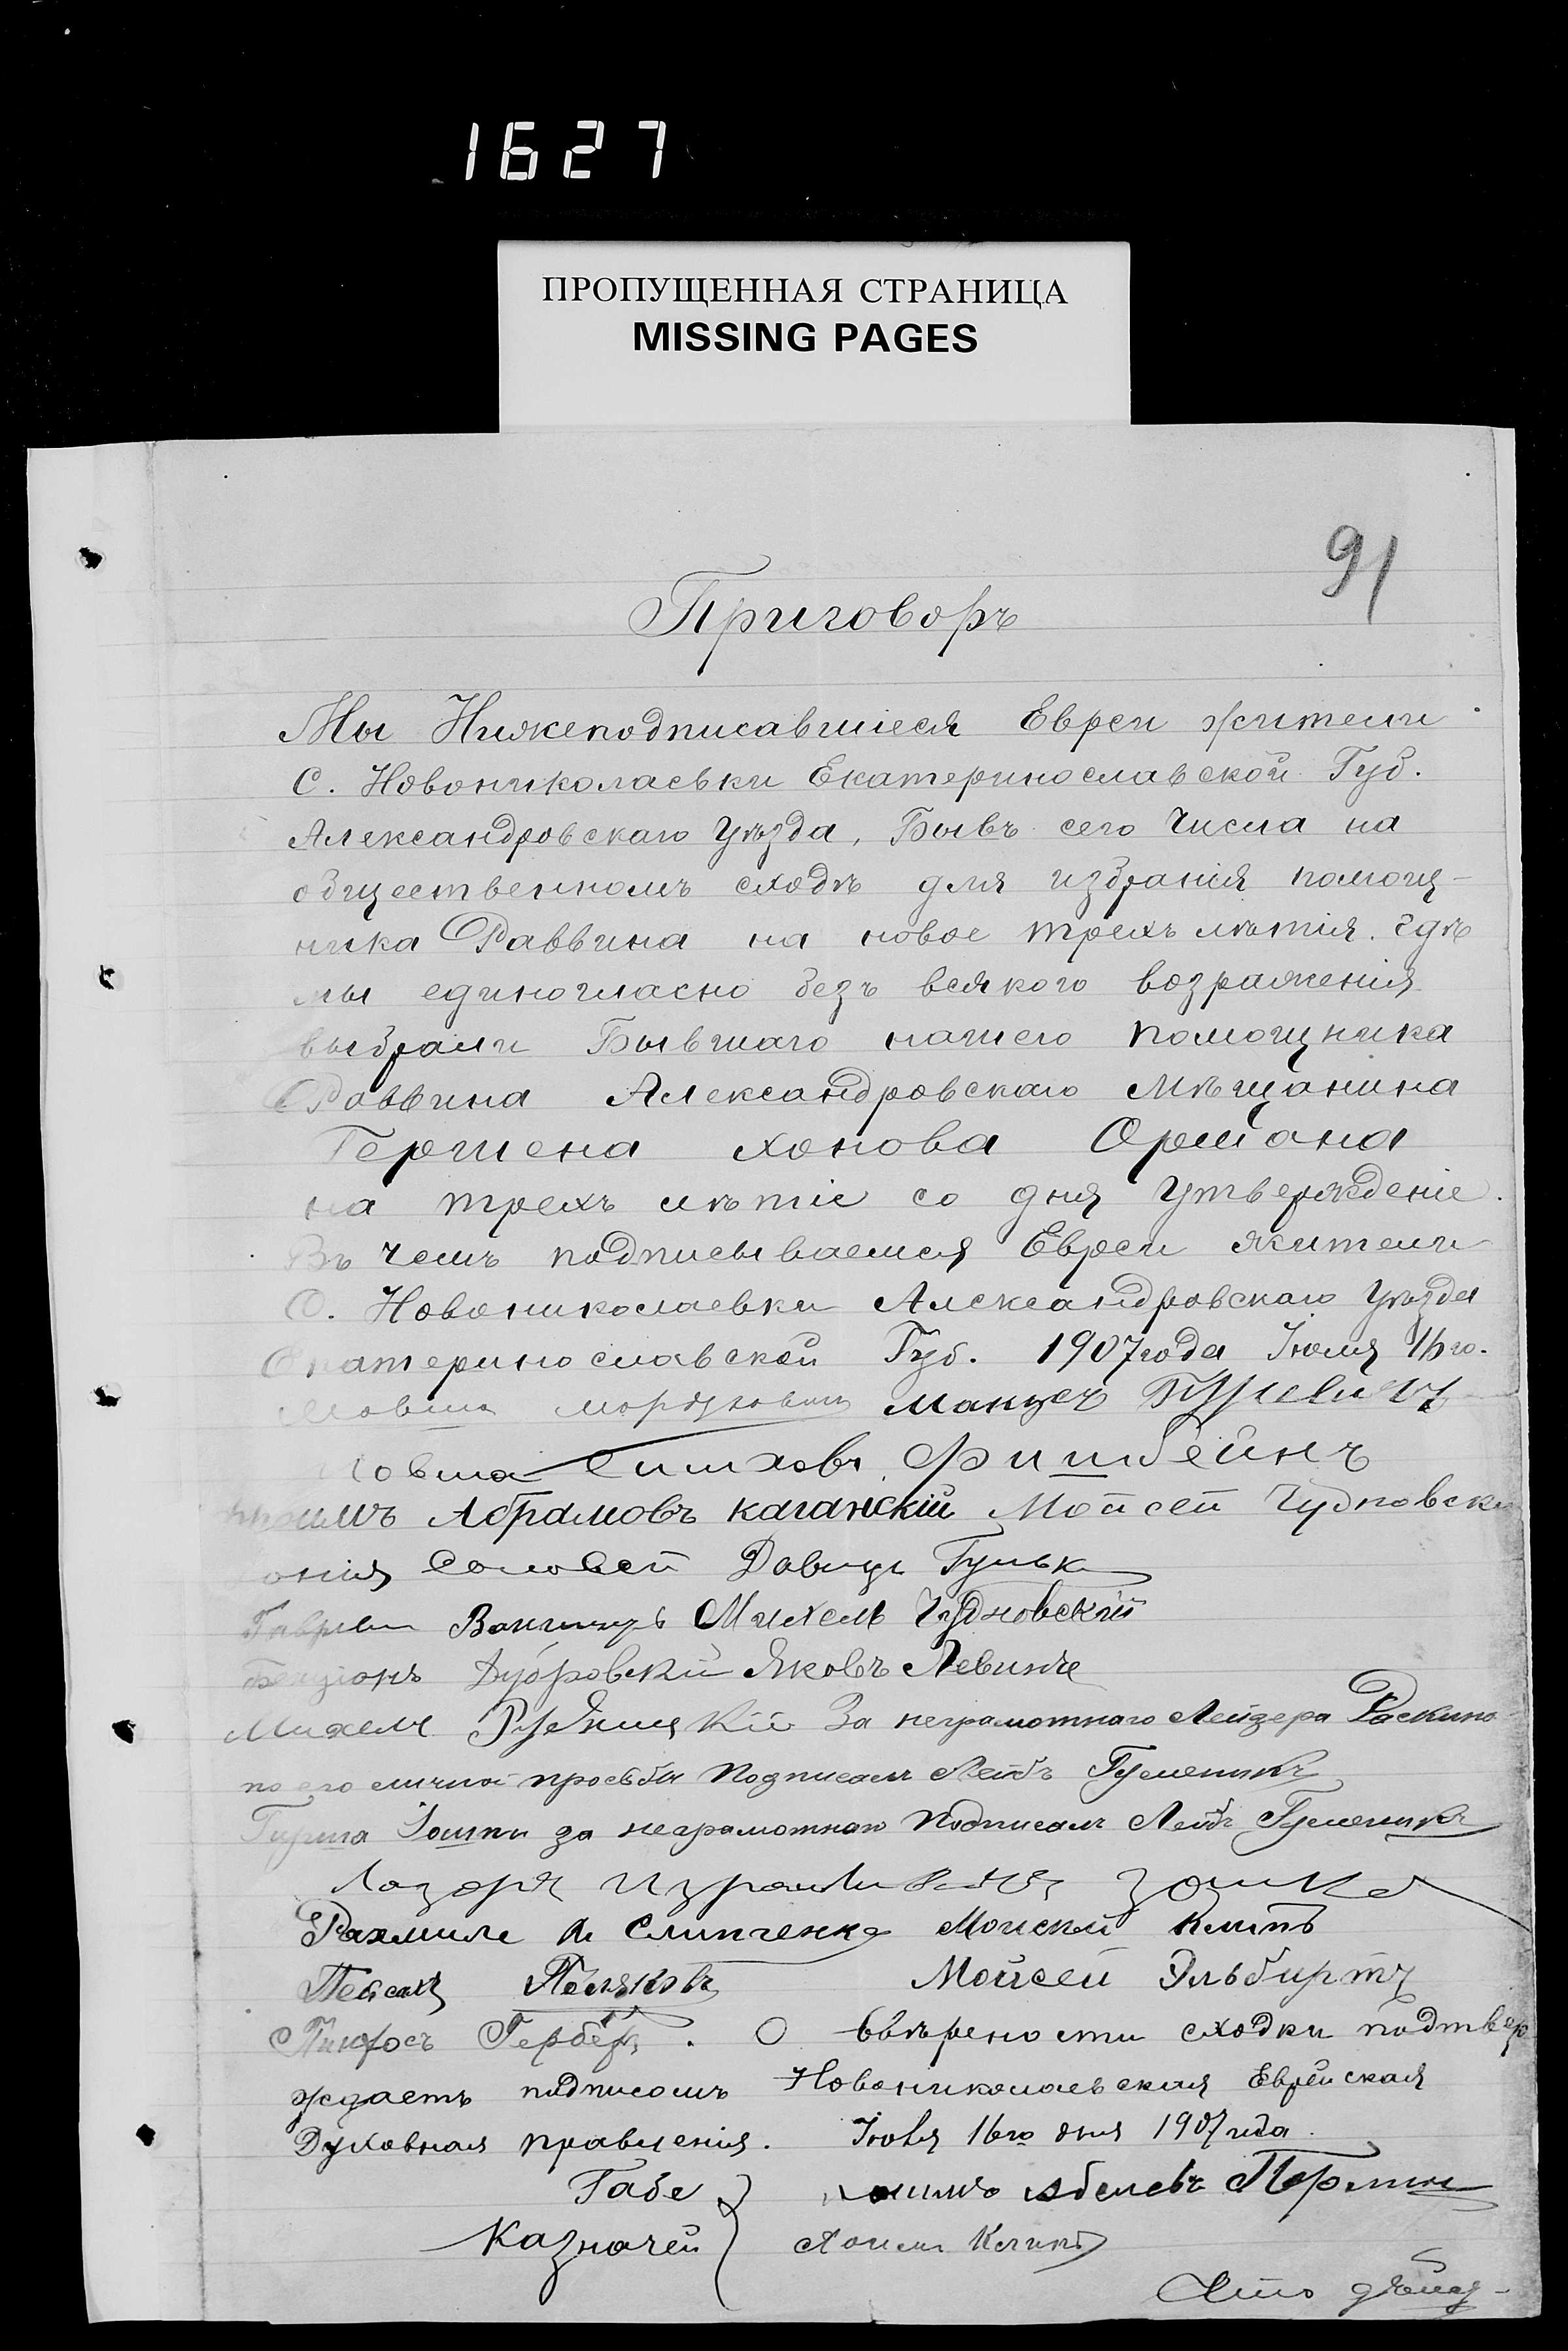 1627
ПРОПУЩЕННАЯ СТРАНИЦА
MISSING PAGES
91
Приговоръ
Мы Нижеподписавшіеся Евреи жители
С. Новониколаевки Екатеринославской Губ.
Александровскаго Уѣзда, Бывъ сего Числа на
общественномъ сходѣ для избранія помощ-
ника Раввина на новое трехъ лѣтія. гдѣ
мы единогласно безъ всякого возраженія
выбрали Бывшаго нашего помощника
Раввина Александровскаго Мѣщанина
Гершена Хонова Оршана
на трехъ лѣтіе со дня Утвержденіе.
Въ чемъ подписываемся Евреи жители
С. Новониколаевки Александровскаго Уѣзда
Екатеринославской Губ. 1907 года Іюля 16 го.
Мовша
Мовша Симховъ Фишбейнъ
Абрамовъ Каганскій Мойсей Чудновски
Соловей Давидъ Гульк
Михель Чудновскій
Бенціонъ Дубровскій Яковъ Левинъ
Михель Рудницкій За неграмотнаго Лейзера Раскина
по его личной просьби Подписалъ Лейбъ Гуменикъ
Гирша за неграмотнаго Подписалъ Лейбъ Гуменикъ
Лазарь
Рахмиль Слипченко Моисей Клипъ
Пейсахъ Поляковъ Мойсей Эльбиртъ
Пинхосъ Герберъ. О ввѣрености сходки подтвер
ждаетъ подписомъ Новониколаевская Еврейская
Духовная правленія. Іюля 16го дня 1907 года.
Габе Абелевъ Перлин
Казначей Клипъ